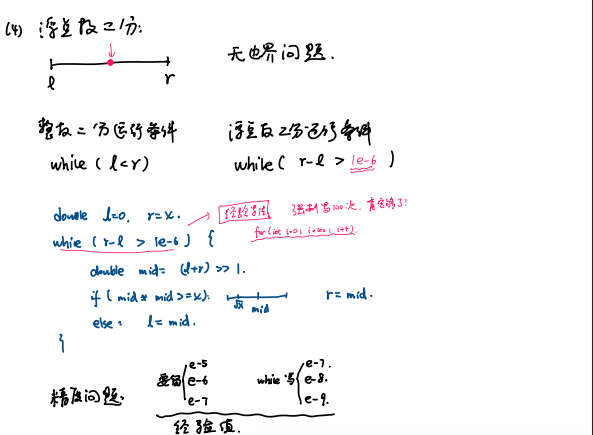 (4) 浮点数二分:
l r
无边界问题.
整数二分运行条件 浮点数二分运行条件
while (l<r) while( r-l > 1e-6 )
double l=0, r=x.
经验值 强制写100次, 肯定够了!
while (r-l > 1e-6) {
for(int i=0; i<100; i++)
double mid= (l+r) >> 1.
if( mid * mid >=x): √x mid r=mid.
else: l=mid.
}
精度问题: 要留 e-5 e-6 e-7 while写 e-7. e-8. e-9.
经验值.